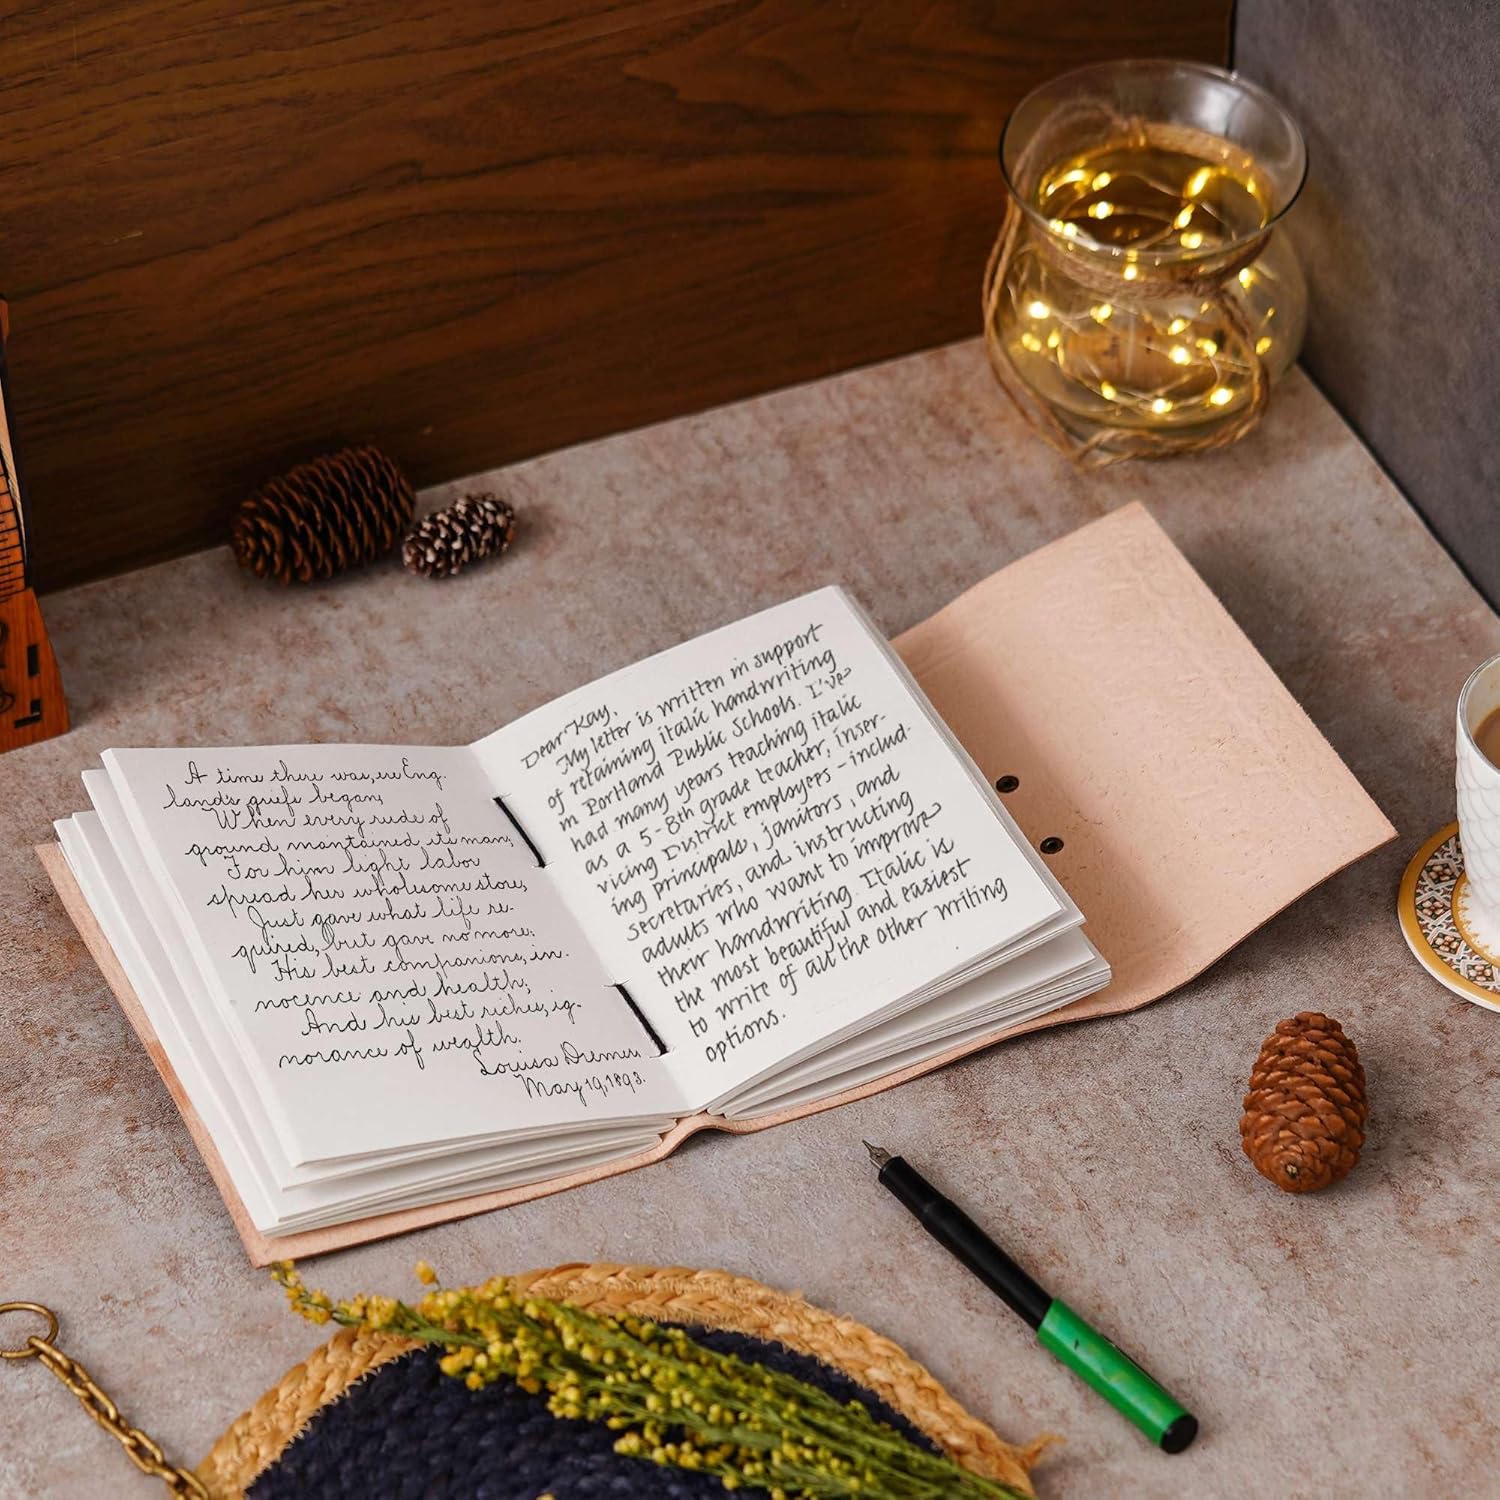 A time there was, ere Eng.
land's griefs began,
When every rude of
ground maintained its man;
For him light labor
spread her wholesome store,
Just gave what life re-
quired, but gave no more;
His best companions, in-
nocence and health;
And his best riches, ig-
norance of wealth.
Louisa
May 19, 1893.
Dear Kay,
My letter is written in support
of retaining italic handwriting
in Portland Public Schools. I've
had many years teaching italic
as a 5-8th grade teacher, inser-
vicing District employees – includ-
ing principals, janitors, and
secretaries, and instructing
adults who want to improve
their handwriting. Italic is
the most beautiful and easiest
to write of all the other writing
options.